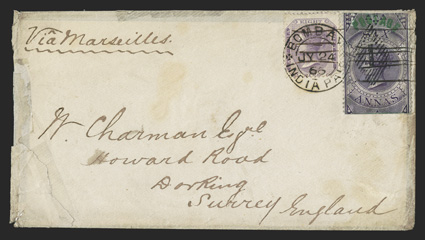 Via Marseilles.
BOMBAY
JY 24
INDIA PAID
ANNAS
W. Charman Esqre
Howard Road
Dorking
Surrey England